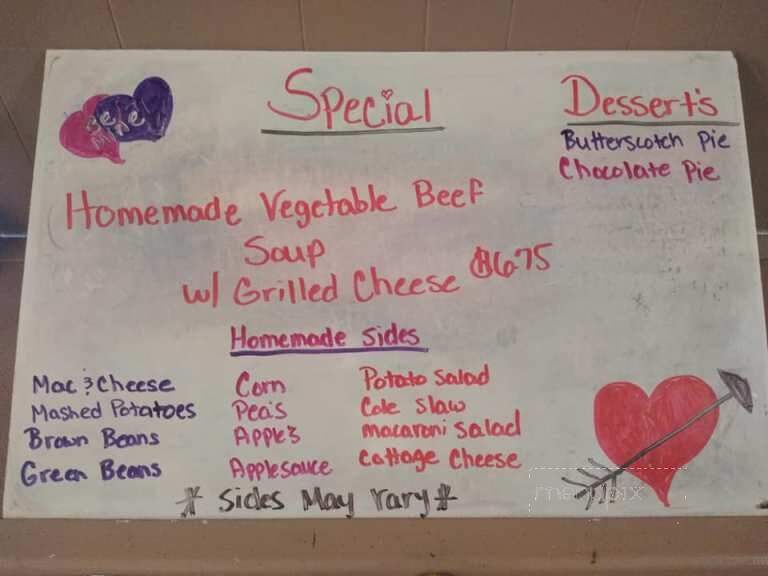 Special
Homemade Vegetable Beef
Soup
w/ Grilled Cheese $6.75
Dessert's
Butterscotch Pie
Chocolate Pie
Homemade Sides
Mac & Cheese
Mashed Potatoes
Brown Beans
Green Beans
Corn
Pea's
Apple's
Applesauce
Potato Salad
Cole Slaw
macaroni Salad
Cottage Cheese
* Sides May Vary *
menupix